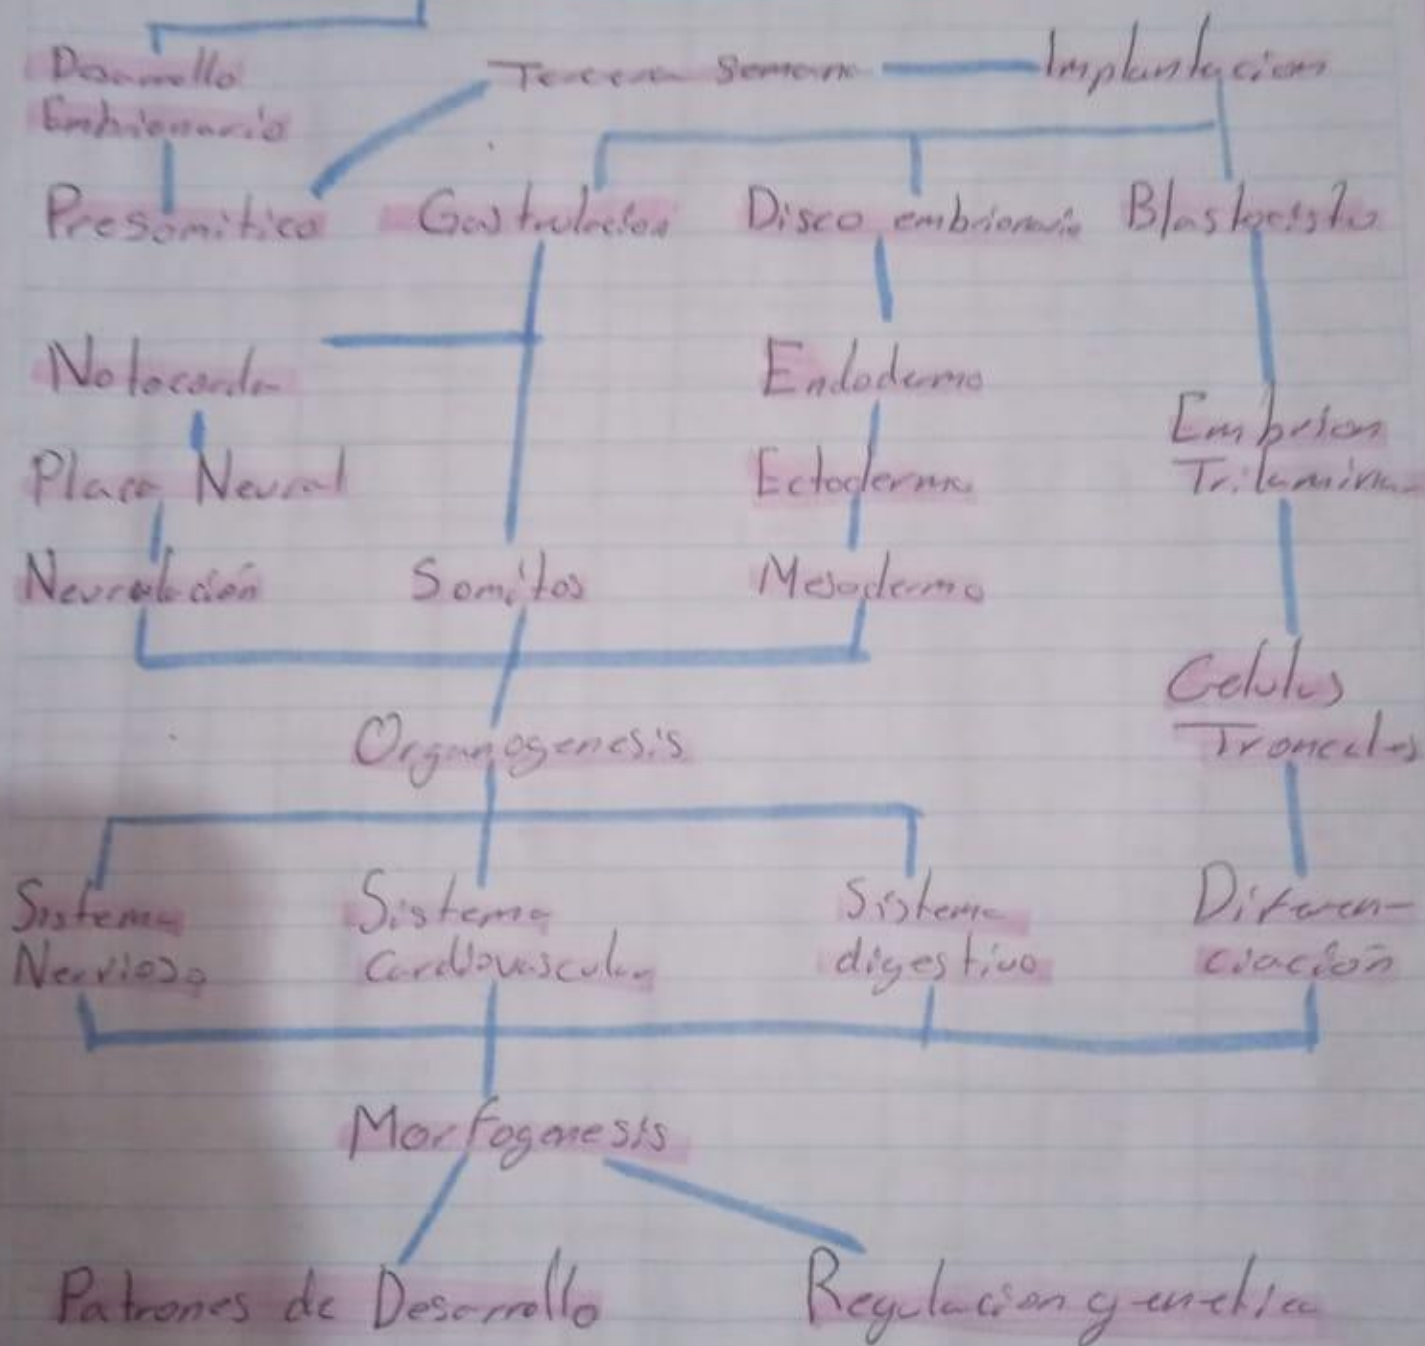 Desarrollo
Embrionario
Tercera Semana
Implantacion
Presomitico
Gastrulacion
Disco embrionario
Blastocisto
Notocorda
Endodermo
Embrion
Trilaminar
Placa Neural
Ectodermo
Neurulación
Somitos
Mesodermo
Celulas
Troncales
Organogenesis
Sistema
Nervioso
Sistema
Cardiovascular
Sistema
digestivo
Diferen-
ciación
Morfogenesis
Patrones de Desarrollo
Regulacion genetica